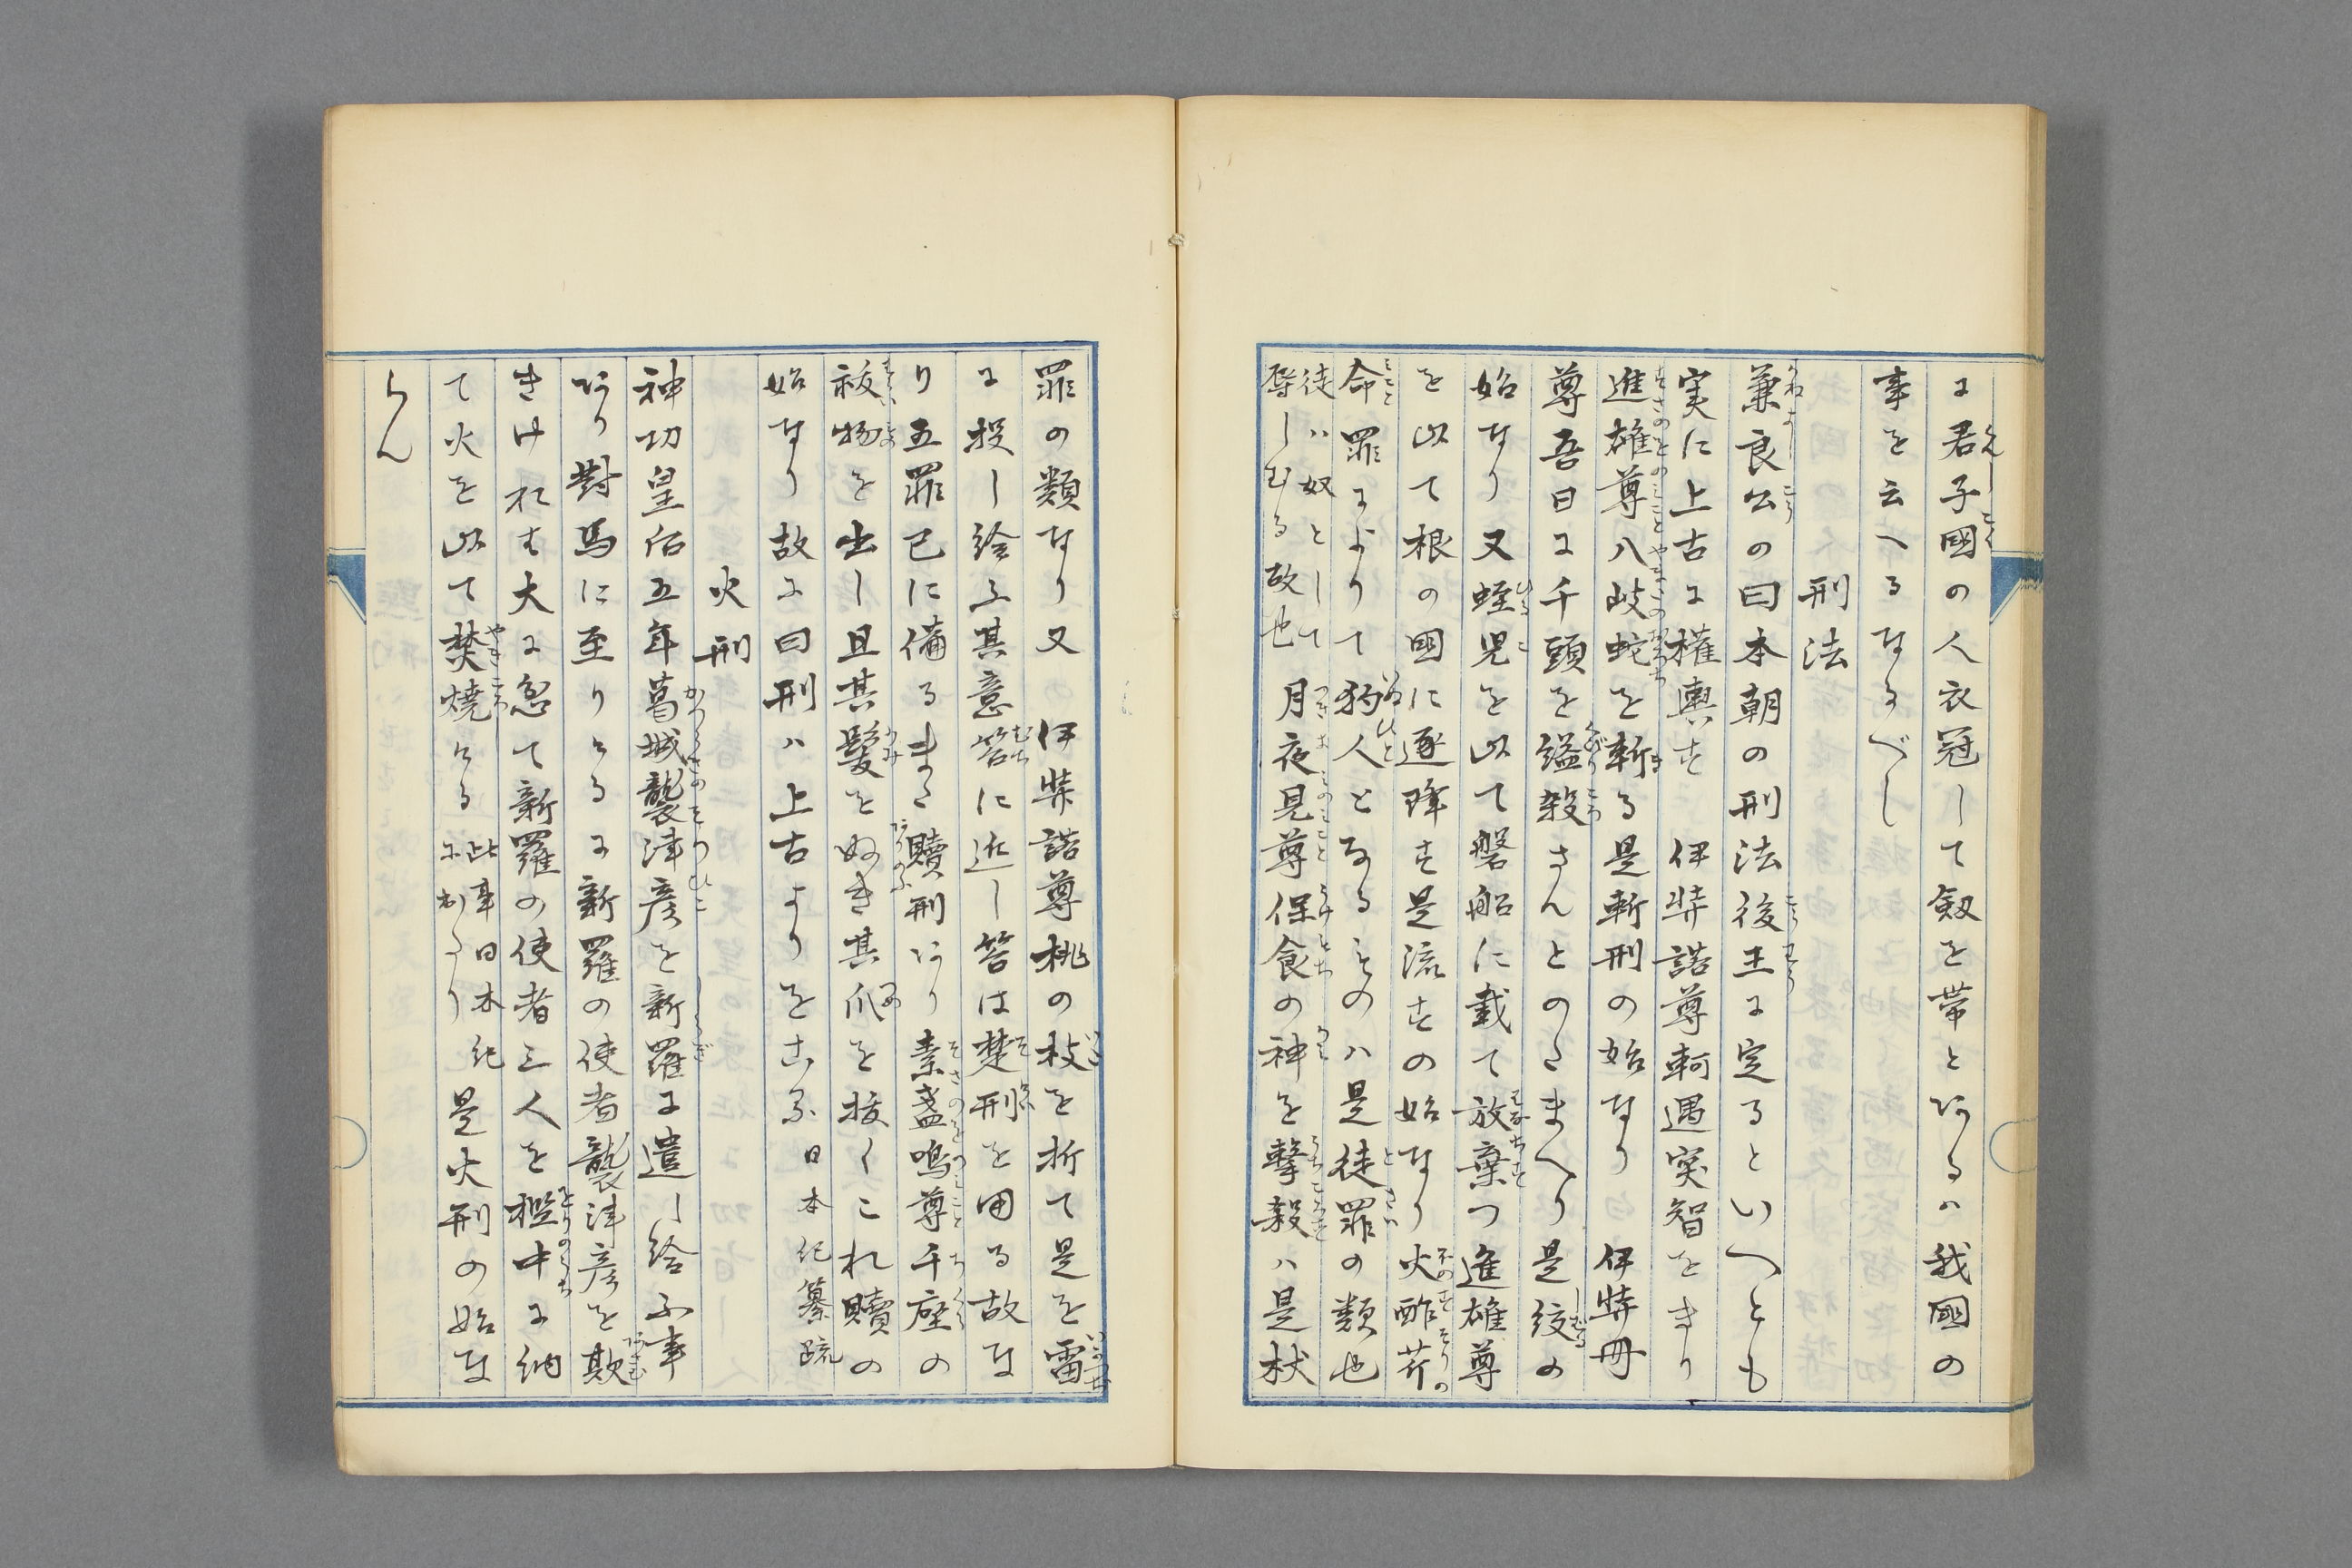 に君子國の人衣冠して劔を帯とあるハ我國の
事を云へるなるべし
刑法
兼良公の曰本朝の刑法後王に定るといへとも
実に上古に権輿す　伊弉諾尊軻遇突智をきり
進雄尊八岐蛇を斬る是斬刑の始なり　伊弉冊
尊吾日に千頭を縊殺さんとのたまへり是絞の
始なり又蛭児を以て磐船に載て放棄つ進雄尊
を以て根の國に逐降す是流すの始なり火酢芹
命罪によりて狗人となるものハ是徒罪の類也
徒ハ奴として
辱しむる故也
月夜見尊保食の神を撃殺ハ是杖
罪の類なり又　伊弉諾尊桃の枝を折て是を雷
に投し給ふ其意笞に近し笞は楚刑を用る故な
り五罪已に備るまた贖刑あり素盞嗚尊千座の
祓物を出し且其髪をぬき其爪を抜くこれ贖の
始なり故に曰刑ハ上古よりをこる　日本紀纂疏
火刑
神功皇后五年葛城襲津彦を新羅に遣し給ふ事
あり對馬に至りけるに新羅の使者襲津彦を欺
きけれは大に忿て新羅の使者三人を檻中に納
て火を以て焚焼ける
此事日本紀
に出たり
是火刑の始な
らん